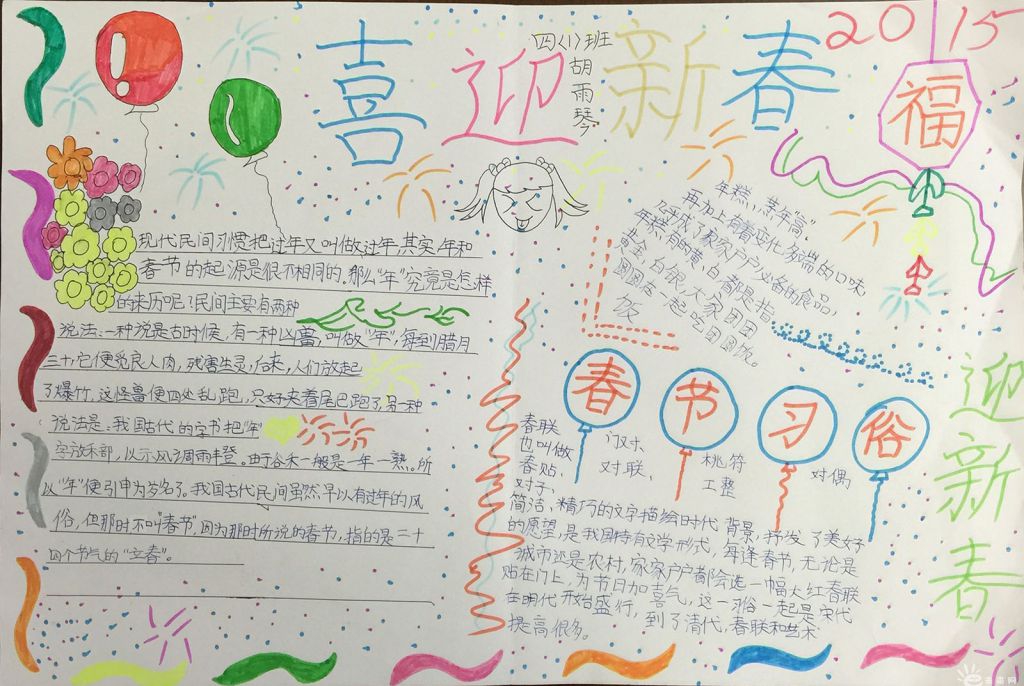 喜迎新春
四(1)班
胡雨琴
2015
福
现代民间习惯把过年又叫做过年,其实,年和
春节的起源是很不相同的。那么"年"究竟是怎样
的来历呢?民间主要有两种
说法:一种说是古时候,有一种凶兽,叫做"年",每到腊月
三十,它便觉良人肉,残害生灵,后来,人们放起
了爆竹,这怪兽便四处乱跑,只好夹着尾巴跑了,另一种
说法是:我国古代的字书把"年"
字放禾部,以示风调雨丰登。由于谷禾一般是一年一熟。所
以"年"便引申为岁名了。我国古代民间虽然早以有过年的风
俗,但那时不叫"春节",因为那时所说的春节,指的是二十
四个节气的"立春"。
年糕,蒸年高,
再加上有着变化多端的口味
几乎成了家家户户必备的食品,
年糕,有的黄,白都是指
黄金,白银,大家团团
圆圆在一起吃团圆饭。
饭
春节习俗
春联
也叫做
春贴、
对子、
对联、
桃符
工整
对偶
简洁,精巧的文字描绘时代背景,抒发了美好
的愿望,是我国特有文学形式,每逢春节,无论是
城市还是农村,家家户户都会选一幅大红春联
贴在门上,为节日加喜气,这一习俗一起是宋代
在明代开始盛行,到了清代,春联和艺术
提高很多。
迎新春